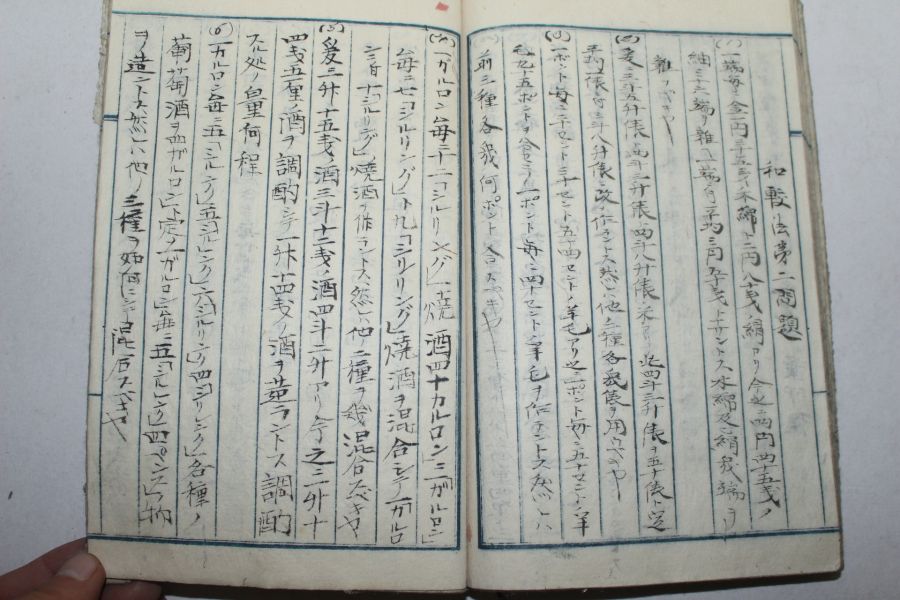 和較法第二問題
(一)一端毎ニ金一円三十五銭ノ木綿ト二円八十銭ノ絹アリ今之ニ四円四十五銭ノ
紬三十六端ヲ雜へ一端ノ平均三円五銭トナサントス木綿及ヒ絹幾端ヲ
雜ユベキヤ
(二)爰ニ三斗五升俵四斗三升俵四斗八升俵ノ米アリ此四斗三升俵ヲ五十俵ト定
平均俵付三斗八升俵ニ改メ作ントス然ハ他ノ二種各幾俵ヲ用ウベキヤ
(三)一ポント毎ニ二十セント三十セント五十四セントノ羊毛アリ之ニポント毎ニ五十セントノ羊
毛九十五ポントヲ合セテ一ポント毎ニ四十セントノ羊毛ヲ作ントス然ハ
前三種各幾何ポント合スベキヤ
(四)一ガルロン毎ニ十二「シルリング」ノ燒酒四十ガルロンニ一「ガルロン」
毎ニ七「シルリング」ト九「シルリング」ノ燒酒ヲ混合シテ一ガルロ
ンニ付十「シルリング」ノ燒酒ヲ作ラントス然ハ他ノ二種ヲ幾混合スベキヤ
(五)爰ニ三升十五銭ノ酒三斗十二銭ノ酒四斗二升アリ今之ニ升十
四銭五厘ノ酒ヲ調酌シテ一升十四銭ノ酒ヲ造ラントス調酌
スル処ノ量何程
(六)一ガルロン毎ニ五「シルレング」五「シルレング」六「シルリング」四「シリレング」各種ノ
葡萄酒ヲ四ガルロント定メ一ガルロン毎ニ五「シルレング」四「ペンス」ノ物
ヲ造ントス然ハ他ノ三種ヲ如何ニシテ混合スベキヤ